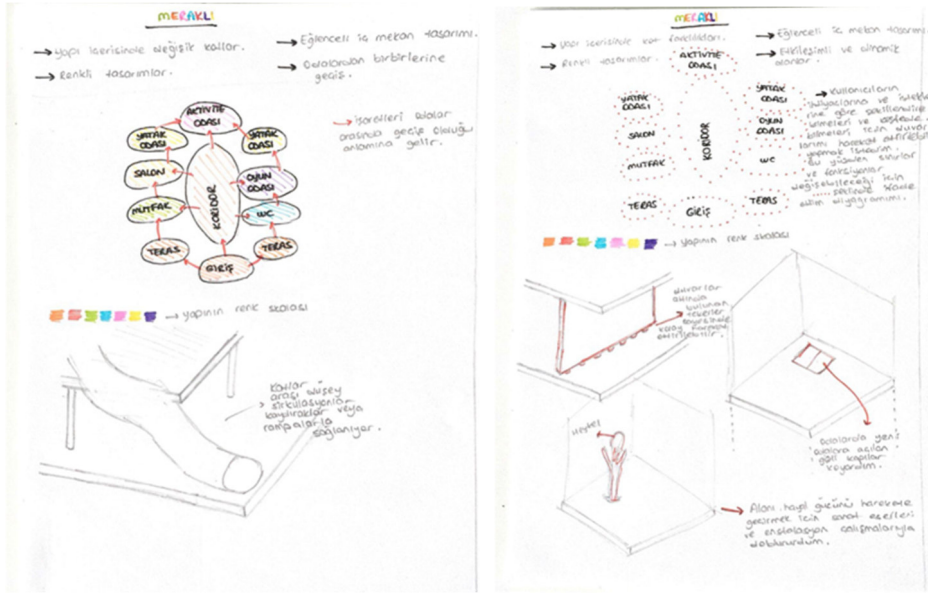 MERAKLI
→ Yapı içerisinde değişik katlar.
→ Renkli tasarımlar.
→ Eğlenceli iç mekan tasarımı.
→ Odalardan birbirlerine
geçiş.
AKTİVİTE
ODASI
YATAK
ODASI
YATAK
ODASI
SALON
OYUN
ODASI
MUTFAK
WC
KORİDOR
TERAS
TERAS
GİRİŞ
→ İşaretleri odalar
arasında geçiş olduğu
anlamına gelir.
→ yapının renk skalası
Katlar
arası düşey
sirkülasyonlar
kaydıraklar veya
rampalarla
sağlanıyor.
MERAKLI
→ Yapı içerisinde kat farklılıkları.
→ Renkli tasarımlar.
→ Eğlenceli iç mekan tasarımı.
→ Etkileşimli ve dinamik
alanlar.
AKTİVİTE
ODASI
YATAK
ODASI
YATAK
ODASI
SALON
OYUN
ODASI
MUTFAK
WC
KORİDOR
TERAS
TERAS
GİRİŞ
→ Kullanıcıların
ihtiyaçlarına ve istekle
rine göre şekillendire
bilmeleri ve
bilmeleri için duvar
larını hareket ettirilebilir
yapmak istedim.
Bu yüzden sınırlar
ve fonksiyonlar
değişebileceği için
şeklinde ifade
ettim diyagramımı.
→ yapının renk skalası
Duvarlar
altında
bulunan
tekerler
sayesinde
kolay hareket
ettirilebilir.
Odalarda yeni
odalara açılan
gizli kapılar
koyardım.
Heykel
→ Alanı hayal gücünü harekete
geçirmek için sanat eserleri
ve enstalasyon çalışmalarıyla
doldururdum.